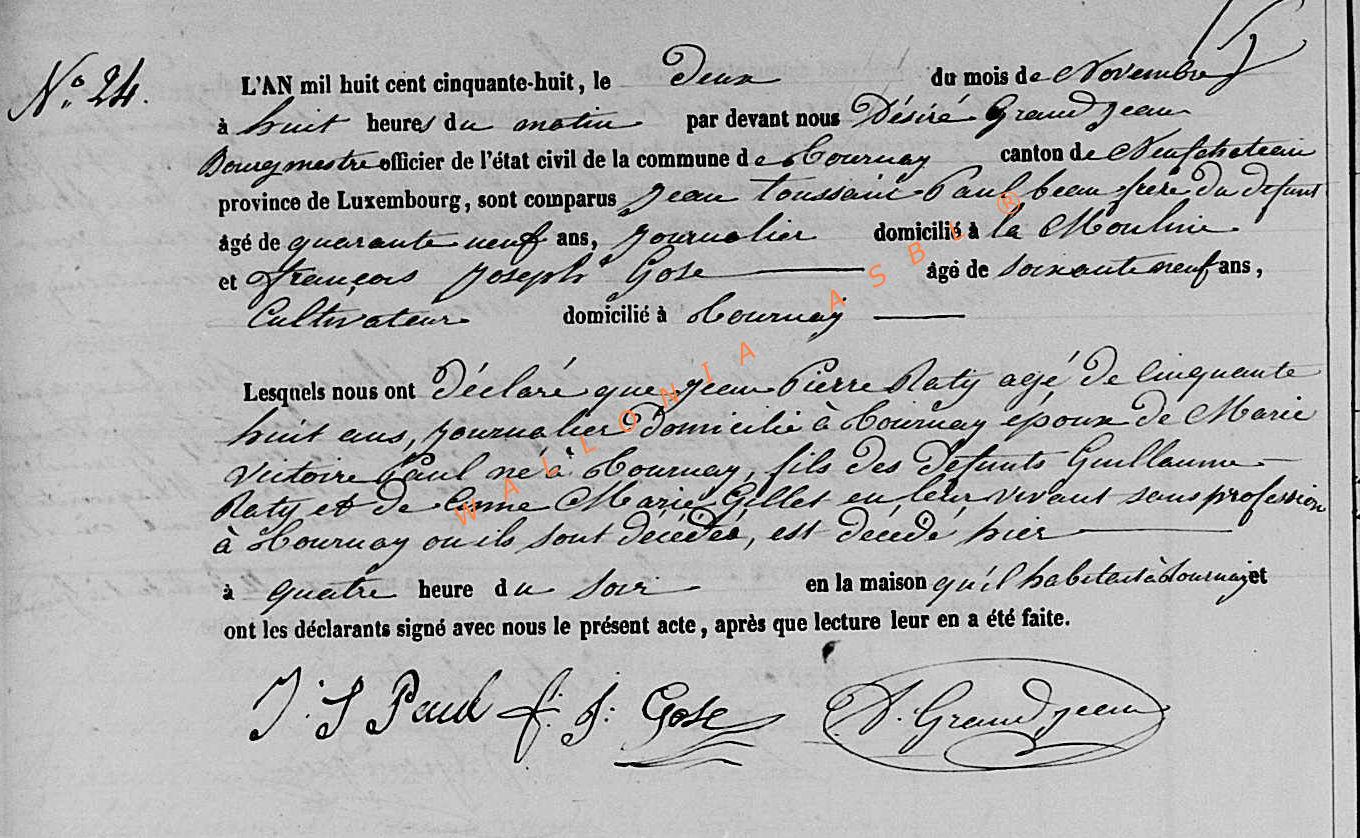 N° 24.
L'AN mil huit cent cinquante-huit, le Deux du mois de Novembre
à huit heures du matin par devant nous Désiré Grandjean
Bourgmestre officier de l'état civil de la commune de Tournay canton de Neufchateau
province de Luxembourg, sont comparus Jean Toussaint Paul beau-frère du défunt
âgé de quarante neuf ans, journalier domicilié à la Mouline
et François Joseph Gose âgé de soixante neuf ans,
Cultivateur domicilié à Tournay
Lesquels nous ont Déclaré que Jean Pierre Raty agé de Cinquante
huit ans, journalier Domicilié à Tournay époux de Marie
Victoire Paul né à Tournay, fils des Défunts Guillaume
Raty et de Anne Marie Gillet en leur vivant sans profession
à Tournay ou ils sont décédés, est décédé hier
à quatre heure du soir en la maison qu'il habitait à Tournay et
ont les déclarants signé avec nous le présent acte, après que lecture leur en a été faite.
J. S Paul f: j: Gose D. Grandjean
WALLONIA ASBL ®